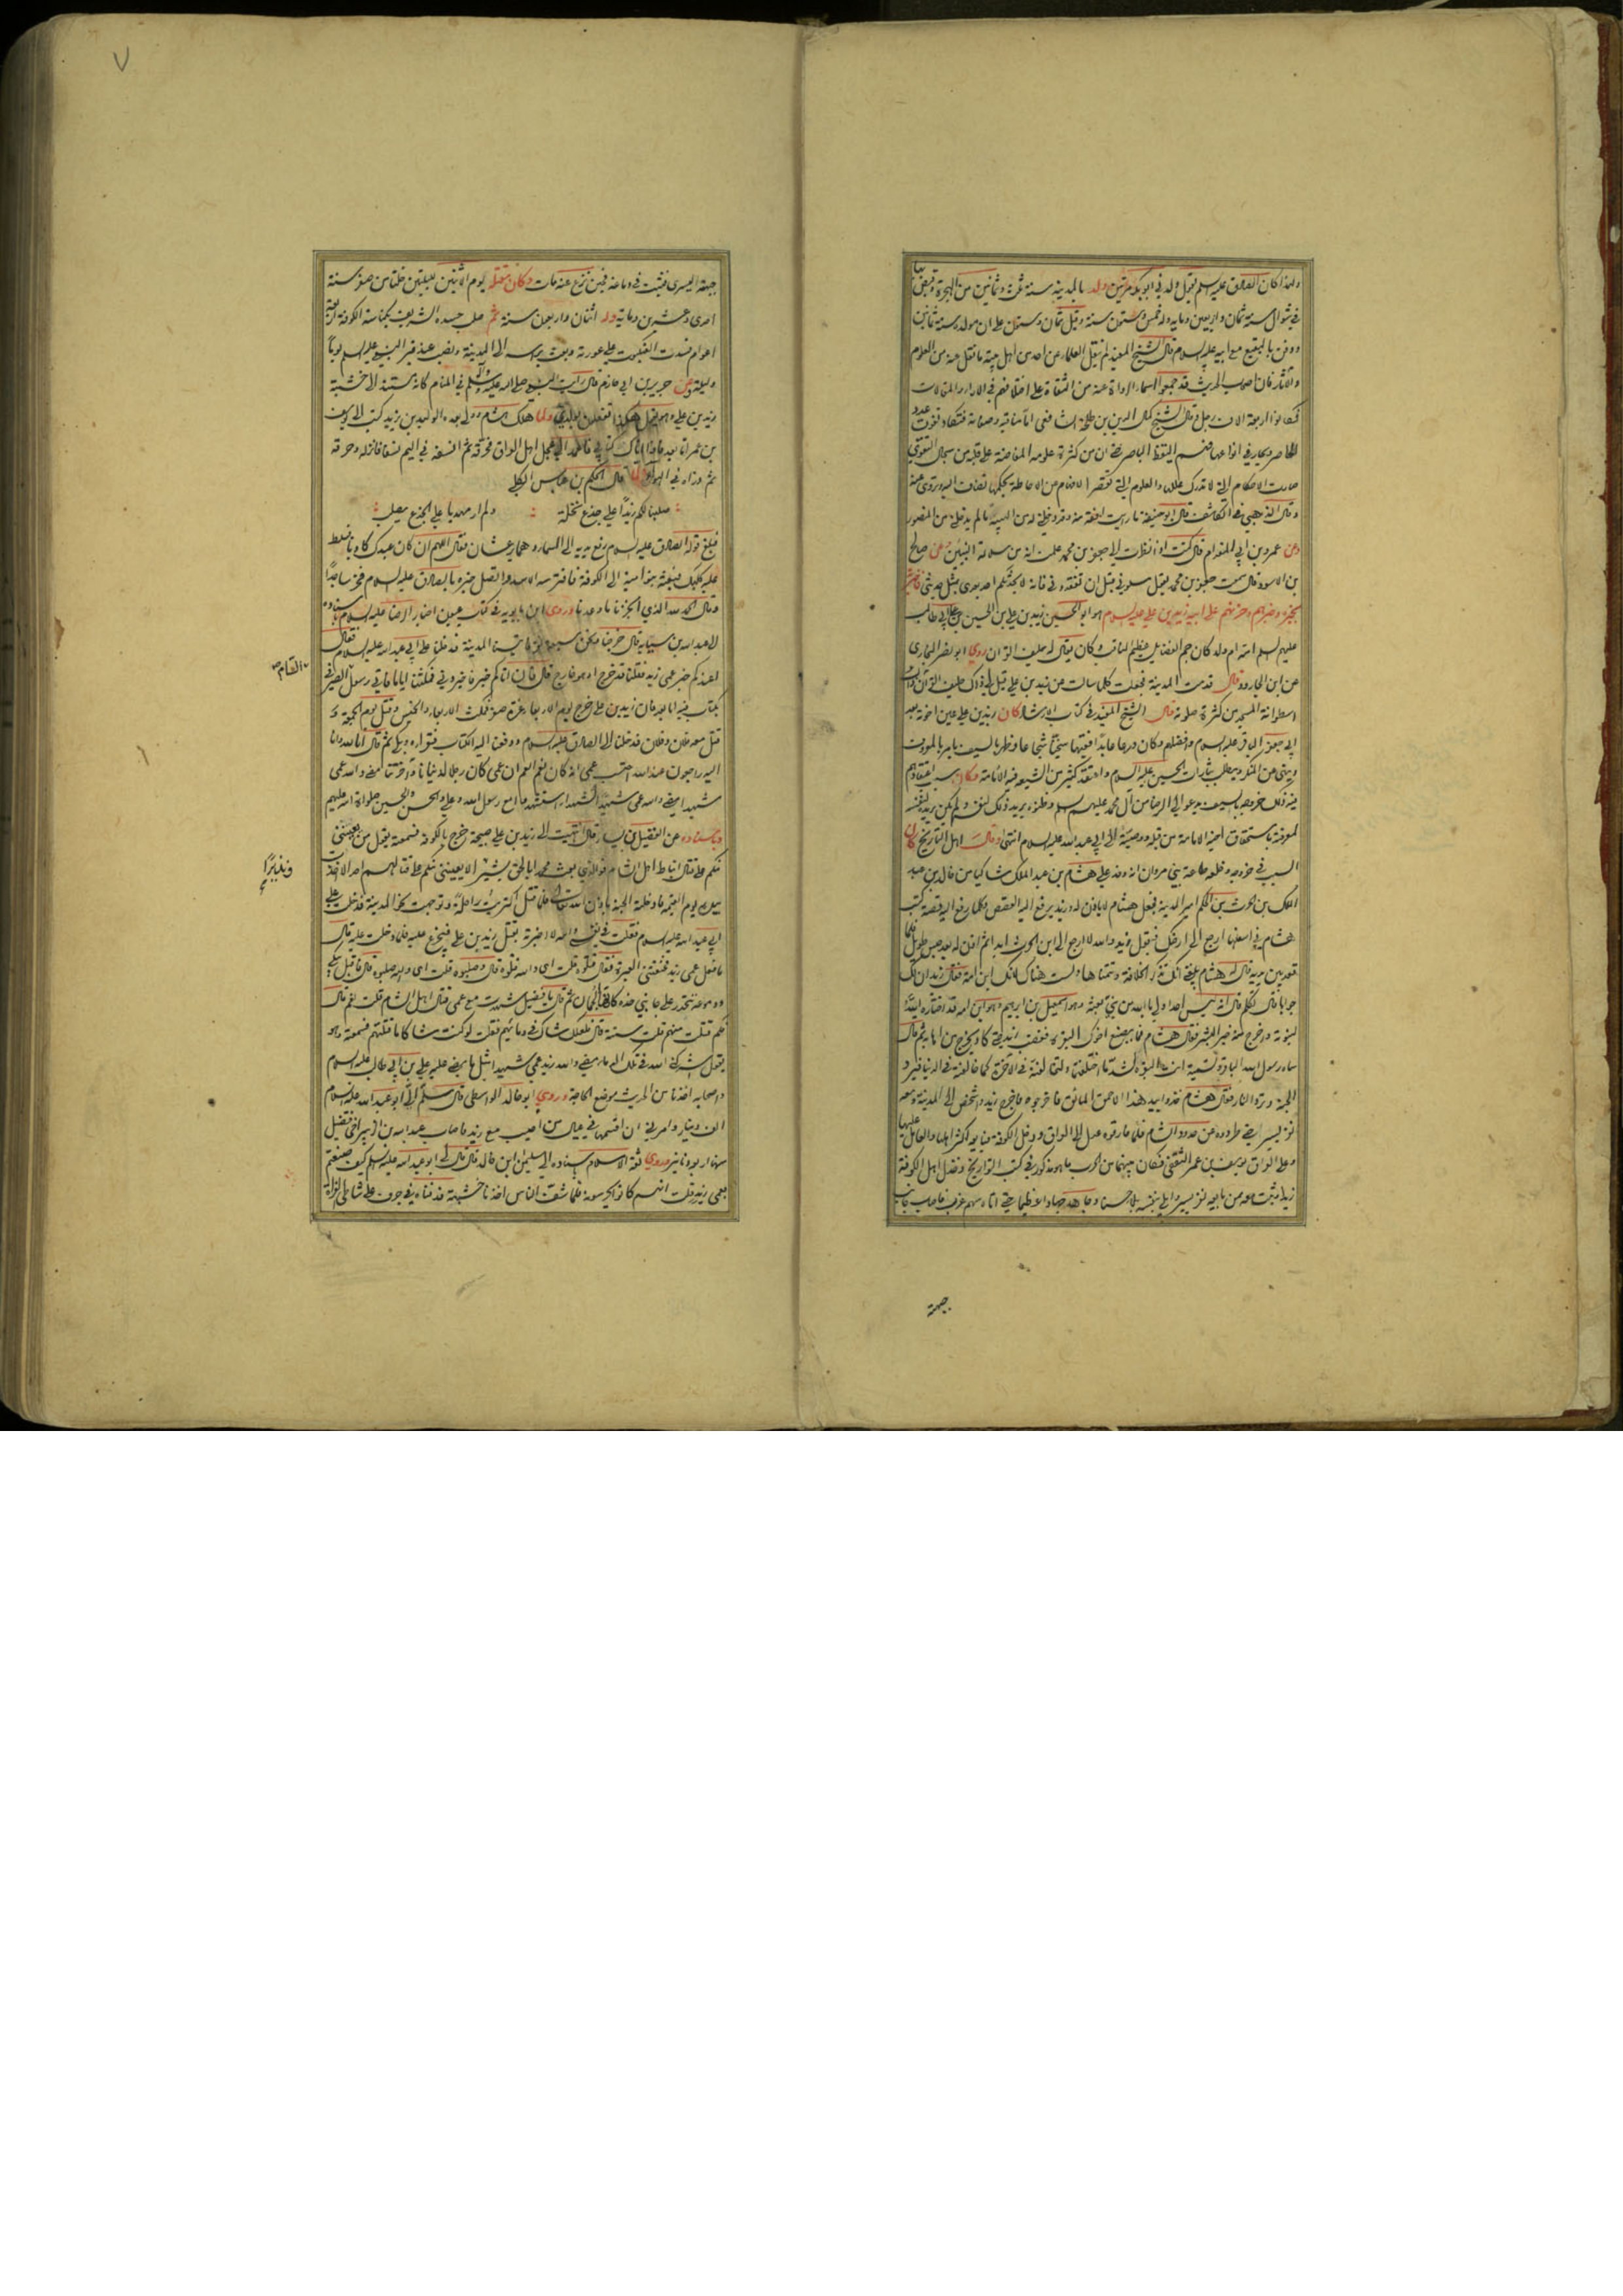 ولهذا كان الصادق عليه السلم يقول ولدني ابو بكر مرتين ولد بالمدينة سنة ثلث وثمانين من الهجرة وقبض بها
في شوال سنة ثمان واربعين ومايه وله خمس وستون سنة وقيل ثمان وستون على ان مولده سنة ثمانين
ودفن بالبقيع مع ابيه عليه السلام قال الشيخ المفيد لم ينقل العلماء عن احد من اهل بيته ما نقل عنه من العلوم
والآثار فان اصحاب الحديث قد جمعوا اسماء الرواة عنه من الثقاة على اختلافهم في الاراء والمقالات
فكانوا اربعة الاف رجل وقال الشيخ كمال الدين بن طلحة الشافعي اما مناقبه وصفاته فتكاد تفوت عدد
الحاصر ويحار في انواعها فهم اليقظ الباصر حتى ان من كثرة علومه المفاضة على قلبه من سجال التقوى
صارت الاحكام التي لا تدرك عللها والعلوم التي تقصر الافهام عن الاحاطة بحكمها تضاف اليه وتروى عنه
وقال الذهبي في الكاشف قال ابو حنيفة ما رايت افقه منه وقد دخلني له من الهيبة ما لم يدخلني من المنصور
وعن عمرو بن ابي المقدام قال كنت اذا نظرت الى جعفر بن محمد علمت انه من سلالة النبيين وعن صالح
بن الاسود قال سمعت جعفر بن محمد يقول سلوني قبل ان تفقدوني فانه لا يحدثكم احد بعدي بمثل حديثي
عليهم السلم امه ام ولد كان جم الفضايل عظيم المناقب وكان يقال له حليف القران روي ابو نصر البخاري
عن ابن الجارود قال قدمت المدينة فجعلت كلما سالت عن زيد بن علي قيل لي ذاك حليف القرآن ذاك
اسطوانة المسجد من كثرة صلوته قال الشيخ المفيد في كتاب الارشاد كان زيد بن علي عين اخوته بعد
ابي جعفر الباقر عليه السلام وافضلهم وكان ورعا عابدا فقيها سخيا شجاعا وظهر بالسيف يامر بالمعروف
وينهى عن المنكر ويطلب بثارات الحسين عليه السلام واعتقد كثير من الشيعه فيه الامامة وكان سبب اعتقادهم
فيه ذلك خروجه بالسيف يدعو الى الرضا من آل محمد عليهم السلم فظنوه يريد بذلك نفسه ولم يكن يريد لنفسه
لمعرفته باستحقاق اخيه الامامة من قبله ووصيته الى ابي عبد الله عليه السلام انتهى وقال اهل التاريخ كان
السبب في خروجه وخلعه طاعة بني مروان انه وفد على هشام بن عبد الملك شاكيا من خالد بن عبد
الملك بن الحرث بن الحكم امير المدينة فجعل هشام لا ياذن له وزيد يرفع اليه القصص وكلما رفع اليه قصة كتب
هشام في اسفلها ارجع الى ارضك فيقول زيد والله لا ارجع الى ابن الحرث ابدا ثم اذن له بعد حبس طويل فلما
قعد بين يديه قال له هشام بلغني انك تذكر الخلافة وتتمناها ولست هناك لانك ابن امة فقال زيد ان لك
جوابا قال تكلم قال انه ليس احد اولى بالله من نبي بعثه وهو اسمعيل بن ابرهيم وهو ابن امة قد اختاره الله
لنبوته واخرج منه خير البشر فقال هشام فما يصنع اخوك البقرة فغضب زيد حتى كاد يخرج من اهابه ثم قال
سماه رسول الله الباقر وتسميه انت البقرة لشد ما اختلفتما ولتخالفنه في الآخرة كما خالفته في الدنيا فيرد
الجنة وترد النار فقال هشام خذوا بيد هذا الاحمق المائق فاخرجوه فاخرج زيد واشخص الى المدينة ومعه
نفر يسير حتى طردوه عن حدود الشام فلما فارقوه عدل الى العراق ودخل الكوفة فبايعه اكثر اهلها والعامل عليها
وعلى العراق يوسف بن عمر الثقفي فكان بينهما من الحرب ما هو مذكور في كتب التواريخ وخذل اهل الكوفة
زيدا وثبت معه ممن بايعه نفر يسير وابلى بنفسه بلاء حسنا وجاهد جهادا عظيما حتى اتاه سهم غرب فاصاب جانب
جبهته
جبهته اليسرى فثبت في دماغه فحين نزع عنه مات وكان مقتله يوم الاثنين لليلتين خلتا من صفر سنة
احدى وعشرين ومايه وله اثنتان واربعون سنة ثم صلب جسده الشريف بكناسة الكوفة اربعة
اعوام فسدت العنكبوت على عورته وبعث براسه الى المدينة ونصب عند قبر النبي عليه السلم يوما
وليلة وعن جرير بن ابي حازم قال رايت النبي صلى الله عليه وآله وسلم في المنام كانه مستند الى خشبة
زيد بن علي وهو يقول هكذا تفعلون بولدي ولما هلك هشام وولي بعده الوليد بن يزيد كتب الى يوسف
بن عمر اما بعد فاذا اتاك كتابي فاعمد الى عجل اهل العراق فحرقه ثم انسفه في اليم نسفا فانزله وحرقه
ثم ذراه في الهواء قال الحكم بن عباس الكلبي
صلبنا لكم زيدا على جذع نخلة ولم ار مهديا على الجذع يصلب
فبلغ قوله الصادق عليه السلام رفع يديه الى السماء وهما يرعشان فقال اللهم ان كان عبدك كاذبا فسلط
عليه كلبك فبعثه بنو امية الى الكوفة فافترسه الاسد واتصل خبره بالصادق عليه السلام فخر ساجدا
وقال الحمد لله الذي انجزنا ما وعدنا وروى ابن بابويه في كتاب عيون اخبار الرضا عليه السلام باسناده
الى عبد الله بن سيابه قال خرجنا ونحن سبعة نفر فاتينا المدينة فدخلنا على ابي عبد الله عليه السلام فقال
اعندكم خبر عمي زيد فقلنا قد خرج او هو خارج قال فان اتاكم خبر فاخبروني فمكثنا اياما فاتى رسول بسام الصيرفي
بكتاب فيه اما بعد فان زيد بن علي خرج يوم الاربعاء غرة صفر فمكث الاربعاء والخميس وقتل يوم الجمعة و
قتل معه فلان وفلان فدخلنا الى الصادق عليه السلام ودفعنا اليه الكتاب فقراه وبكى ثم قال انا لله وانا
اليه راجعون عند الله احتسب عمي انه كان نعم العم ان عمي كان رجلا لدنيانا وآخرتنا مضى والله عمي
شهيدا مضى والله عمي شهيدا كشهداء استشهدوا مع رسول الله وعلي والحسن والحسين صلوات الله عليهم
وباسناده عن الفضيل بن يسار قال انتهيت الى زيد بن علي صبيحة خرج بالكوفة فسمعته يقول من يعينني
منكم على قتال انباط اهل الشام فوالذي بعث محمدا بالحق بشيرا لا يعينني منكم على قتالهم احد الا اخذت
ونذيرا
بيده يوم القيمة فادخلته الجنة باذن الله تعالى فلما قتل اكتريت راحلة وتوجهت نحو المدينة فدخلت على
ابي عبد الله عليه السلام فقلت في نفسي والله لا اخبرته بقتل زيد بن علي فيجزع عليه فلما دخلت عليه قال
ما فعل عمي زيد فخنقتني العبرة فقال قتلوه قلت اي والله قتلوه قال وصلبوه قلت اي والله صلبوه قال فاقبل يبكي
ودموعه تنحدر على جانبي خده كانها الجمان ثم قال يا فضيل شهدت مع عمي قتال اهل الشام قلت نعم قال
فكم قتلت منهم قلت ستة قال فلعلك شاك في دمائهم فقلت لو كنت شاكا ما قتلتهم فسمعته وهو
يقول اشركني الله في تلك الدماء مضى والله زيد عمي شهيدا مثل ما مضى عليه علي بن ابي طالب عليه السلام
واصحابه اخذنا من الحديث موضع الحاجة وروي ابو خالد الواسطي قال سلم الي ابو عبد الله عليه السلام
الف دينار وامرني ان اقسمها في عيال من اصيب مع زيد فاصاب عبد الله بن الزبير اخي فضيل
منها اربعة دنانير وروي ثقة الاسلام باسناده الى سليمان ابن خالد قال قال لي ابو عبد الله عليه السلم كيف صنعتم
بعمي زيد قلت انهم كانوا يحرسونه فلما شف الناس اخذنا خشبته فدفناه في جرف على شاطئ الفرات
٧